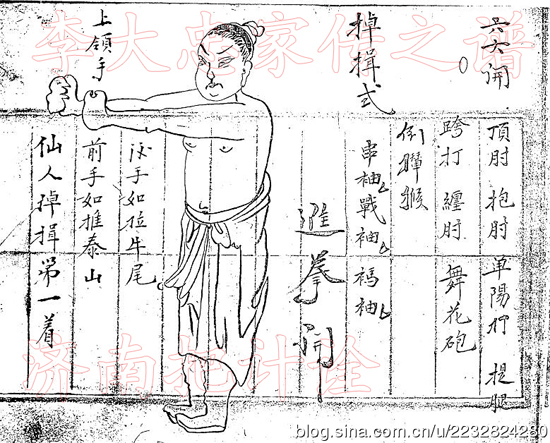 六大開
頂肘 抱肘 單陽打 提腿
跨打 纏肘 舞花砲
倒 猴
掉揖式
串袖 戰袖 袖
拳開
手如拉牛尾
前手如推泰山
仙人掉揖第一着
上領手
李大忠家传之谱
济南
blog.sina.com.cn/u/2232824280